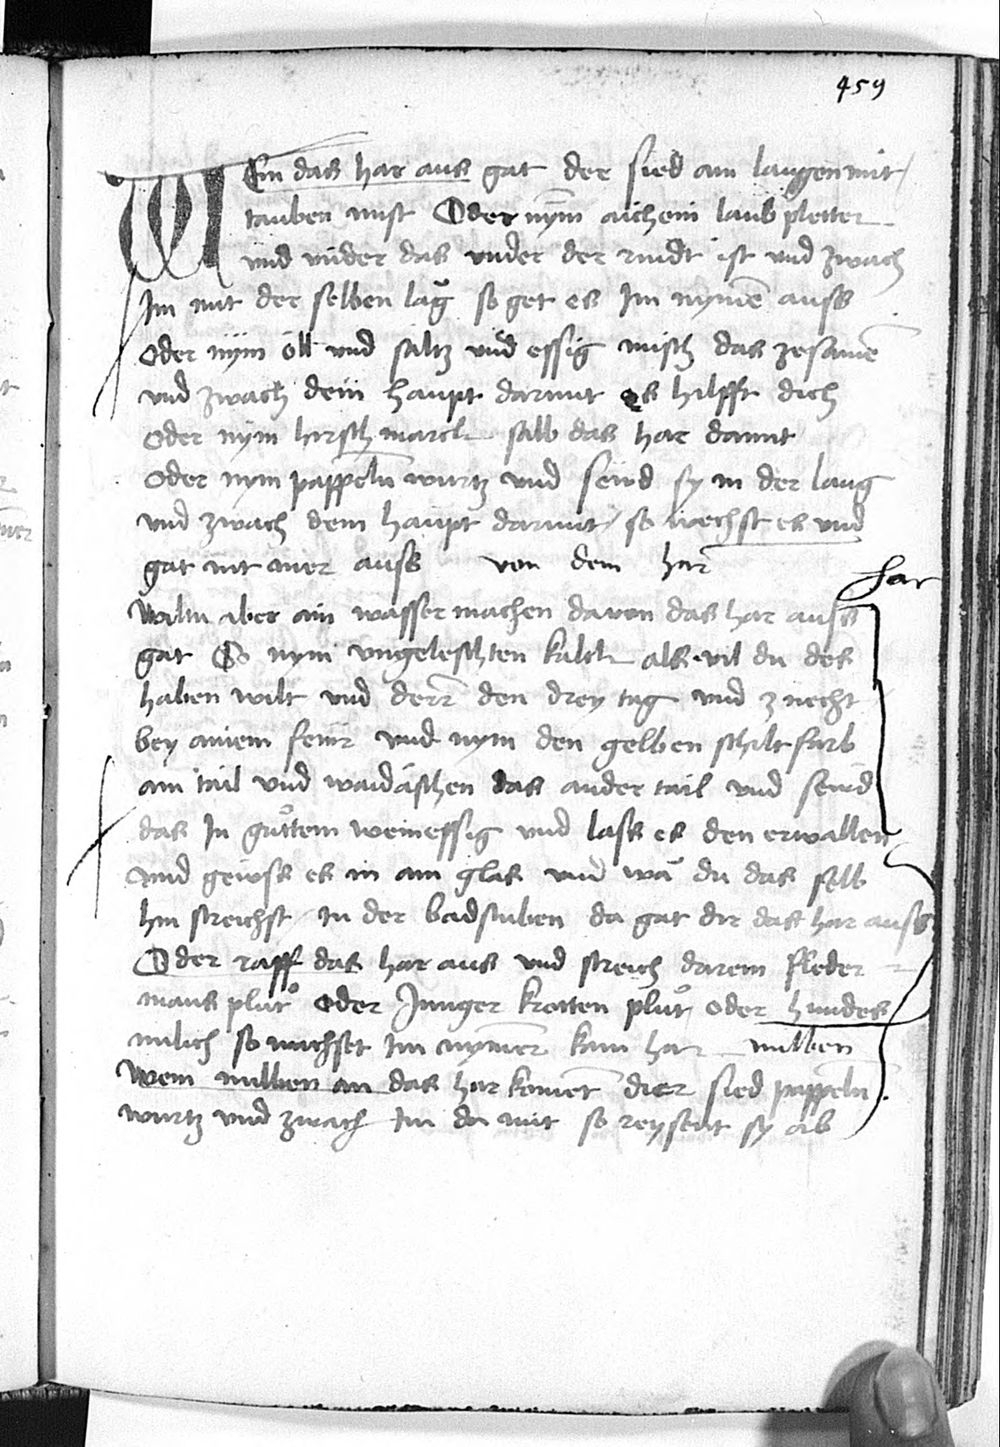 459
Wem das har aus gat der sied ain laugen mit
tauben mist Oder nym aichem laub pletter
und vnder das vnder der rindt ist vnd zwach
Im mit der selben laug so get es Im nymē auss
oder nym öll vnd saltz vnd essig misch das zesamē
vnd zwach dein haupt darmit es hilfft dich
oder nym hirsch marck salb das har damit
oder nym pappeln wurtz vnd seud sy in der laug
vnd zwach dem haupt darmit so wechst es vnd
gat nit mer auss von dem har
har
Wiltu aber ain wasser machen davon das har auss
gat So nym vngeleschten kalch als vil du des
haben wilt vnd derr den drey tag vnd z necht
bey ainem feur vnd nym den gelben schilt farb
ain tail vnd waidäschen das ander tail vnd seud
das In guttem weinessig vnd lass es den erwallen
vnd geuss es in ain glas vnd wa du das selb
hin streichst In der badstuben da gat dir das har auss
Oder rapff das har aus vnd streich darein fleder
maus plut oder Junger krotten plut oder hundes
milich so wachset Im nymer kain har milben
Wem milben an das har komet der sied pappeln
wurtz vnd zwach Im da mit so reysent sy ab